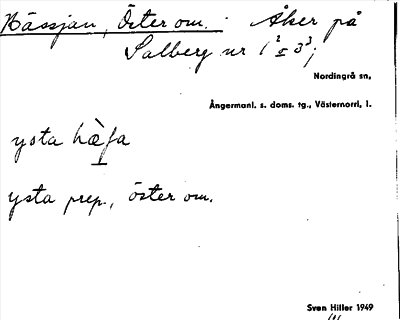 Bässjan, Öster om. Åker på
Salberg nr 1² I 3³;
Nordingrå sn,
Ångermanl. s. doms. tg., Västernorrl. l.
ysta hæ̀fa
ysta prep., öster om.
Sven Hiller 1949